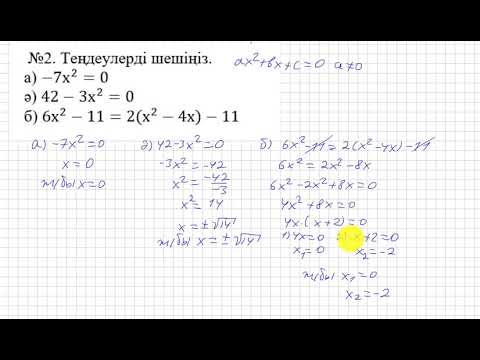 №2. Теңдеулерді шешіңіз.
ax²+bx+c=0 a≠0
а) −7x² = 0
ә) 42 − 3x² = 0
б) 6x² − 11 = 2(x² − 4x) − 11
а) -7x²=0
x=0
ж/бы x=0
ә) 42-3x²=0
-3x²=-42
x²=-42/-3
x²=14
x=±√14
ж/бы x=±√14
б) 6x²-11=2(x²-4x)-11
6x²=2x²-8x
6x²-2x²+8x=0
4x²+8x=0
4x·(x+2)=0
1) 4x=0 2) x+2=0
x₁=0 x₂=-2
ж/бы x₁=0
x₂=-2